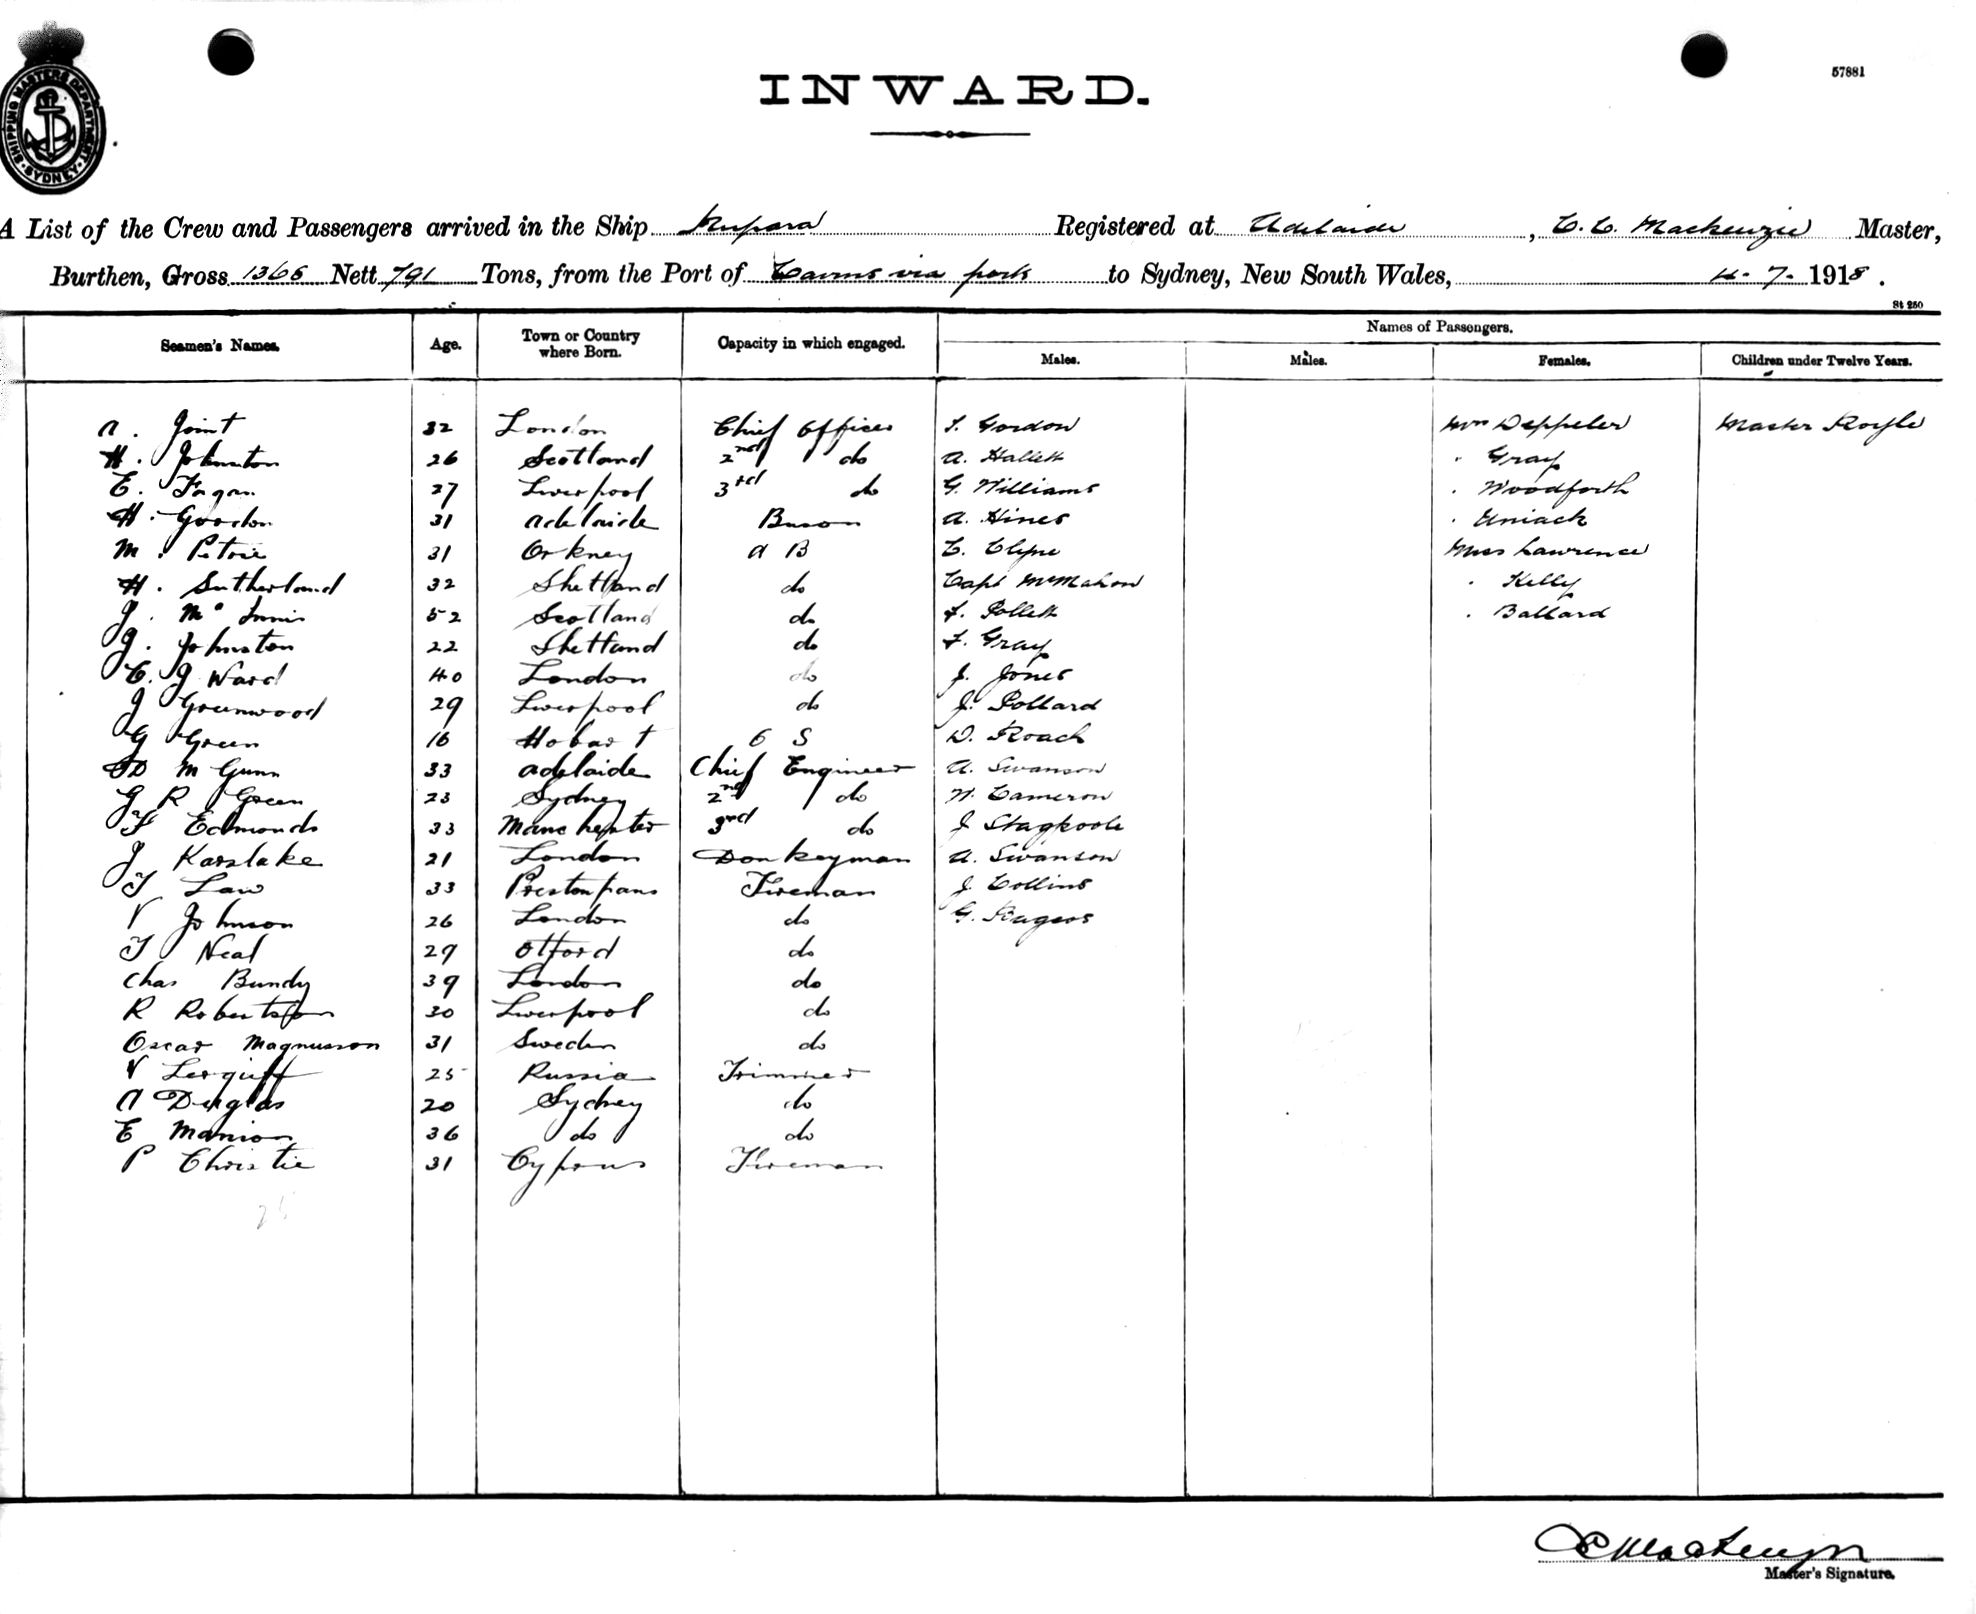 SHIPPING MASTERS DEPARTMENT SYDNEY
57881
INWARD.
A List of the Crew and Passengers arrived in the Ship Rupara Registered at Adelaide, C. C. Mackenzie Master,
Burthen, Gross 1365 Nett 791 Tons, from the Port of Cairns via ports to Sydney, New South Wales, 4.7.1918.
St 250
Seamen's Names. Age. Town or Country where Born. Capacity in which engaged. Names of Passengers.
Males. Males. Females. Children under Twelve Years.
A. Joint 32 London Chief Officer S. Gordon Mrs Deppeler Master Royle
H. Johnston 26 Scotland 2nd do A. Hallett " Gray
E. Fagan 27 Liverpool 3rd do G. Williams " Woodforth
H. Gordon 31 Adelaide Boson A. Hines " Uniack
M. Petrie 31 Orkney A B C. Clyne Miss Lawrence
H. Sutherland 32 Shetland do Capt McMahon " Kelly
J. McInnis 52 Scotland do F. Pollett " Ballard
J. Johnston 22 Shetland do F. Gray
C. J Ward 40 London do J. Jones
J Greenwood 29 Liverpool do J. Pollard
G Green 16 Hobart O S D. Roach
D McGunn 33 Adelaide Chief Engineer A. Swanson
G R Green 23 Sydney 2nd do W. Cameron
F Edmonds 33 Manchester 3rd do J Stagpoole
J Karslake 21 London Donkeyman A. Swanson
T Law 33 Prestonpans Fireman J Collins
V Johnson 26 London do G. Rogers
T Neal 29 Otford do
Chas Bundy 39 London do
R Robertson 30 Liverpool do
Oscar Magnusson 31 Sweden do
V 25 Russia Trimmer
A Douglas 20 Sydney do
E Manion 36 do do
P Christie 31 Cyprus Fireman
25
C Mackenzie
Master's Signature.